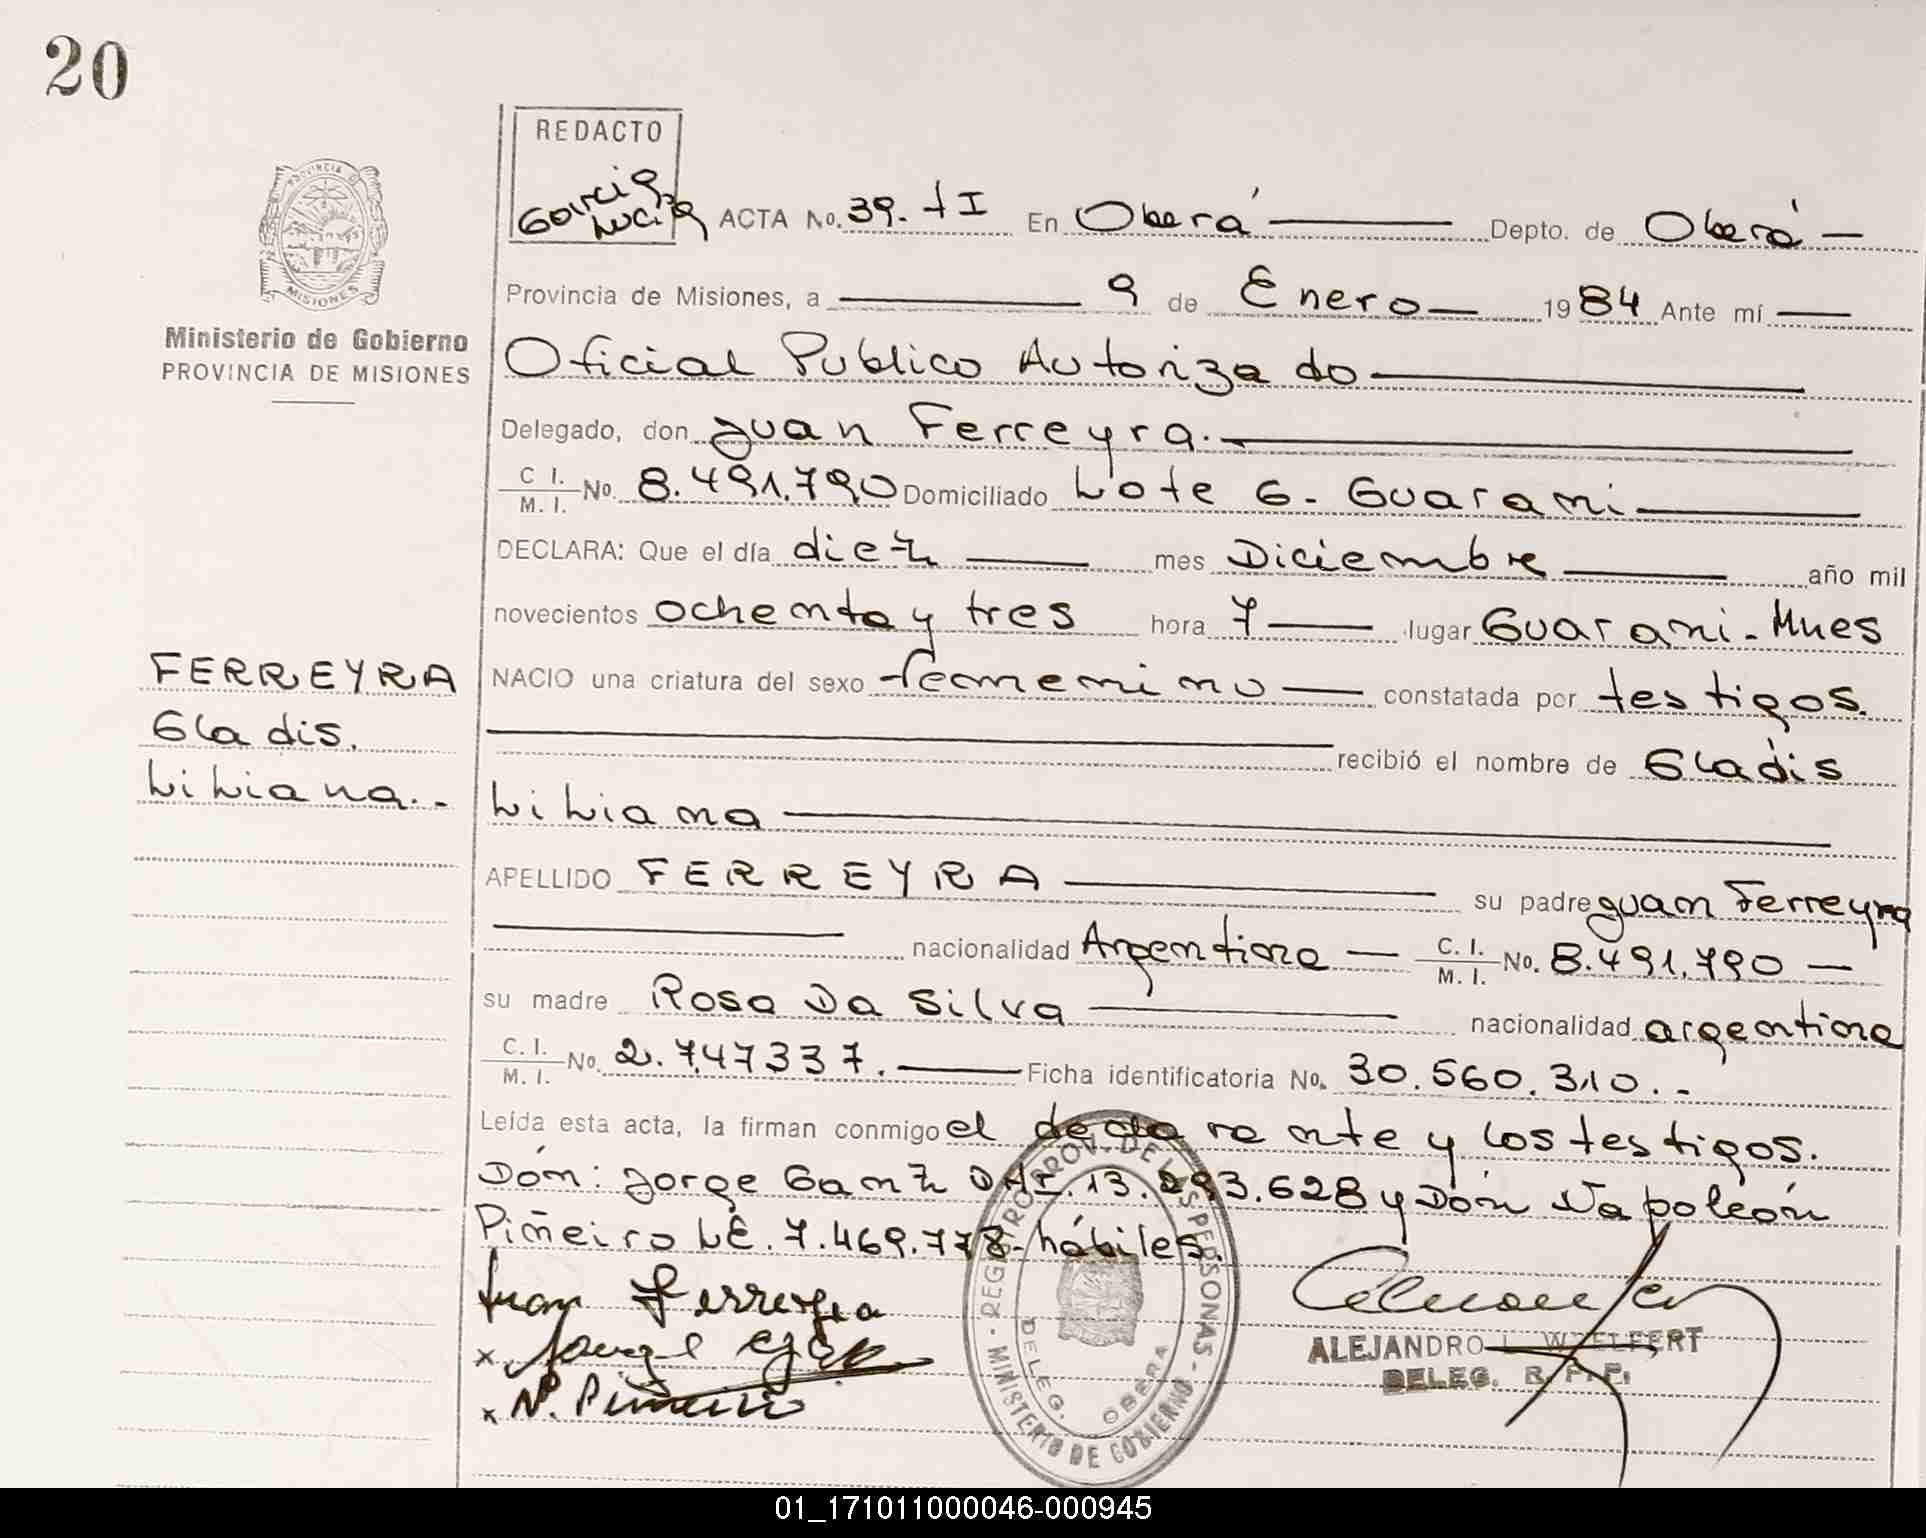 20
REDACTO
Garcia
Lucia
ACTA No. 39. tI En Oberá Depto. de Oberá
PROVINCIA DE
MISIONES
Provincia de Misiones, a 9 de Enero 1984 Ante mí
Ministerio de Gobierno
PROVINCIA DE MISIONES
Oficial Publico Autorizado
Delegado, don Juan Ferreyra.
C I. / M. I. No. 8.491.790 Domiciliado Lote 6. Guarani
DECLARA: Que el día diez mes Diciembre año mil
novecientos ochenta y tres hora 7 lugar Guarani-Mnes
FERREYRA
Gladis.
Liliana..
NACIO una criatura del sexo femenino constatada por testigos.
recibió el nombre de Gladis
Liliana
APELLIDO FERREYRA su padre Juan Ferreyra
nacionalidad Argentina C. I. / M. I. No. 8.491.790
su madre Rosa Da Silva nacionalidad argentina
C. I. / M. I. No. 2.747337. Ficha identificatoria No. 30.560.310..
Leída esta acta, la firman conmigo el declarante y los testigos.
Dón: Jorge Ganz DNI.13. 3.628 y Dón Napoleón
Piñeiro LE. 7.469.778- hábiles.
Juan Ferreyra
x Jorge
x N. Piñeiro
REGISTRO PROV. DE LAS PERSONAS - MINISTERIO DE GOBIERNO
DELEG. OBERA
ALEJANDRO L. WELFERT
DELEG. R. P. P.
01_171011000046-000945